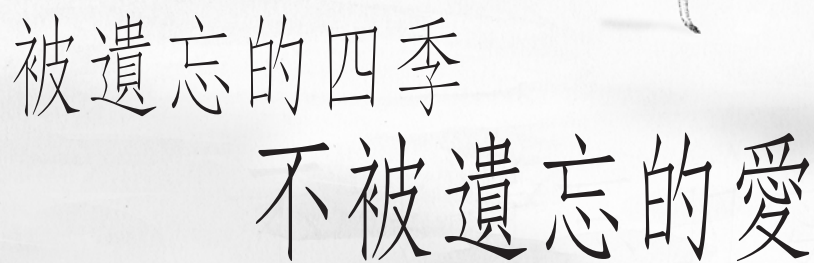 被遺忘的四季
不被遺忘的愛